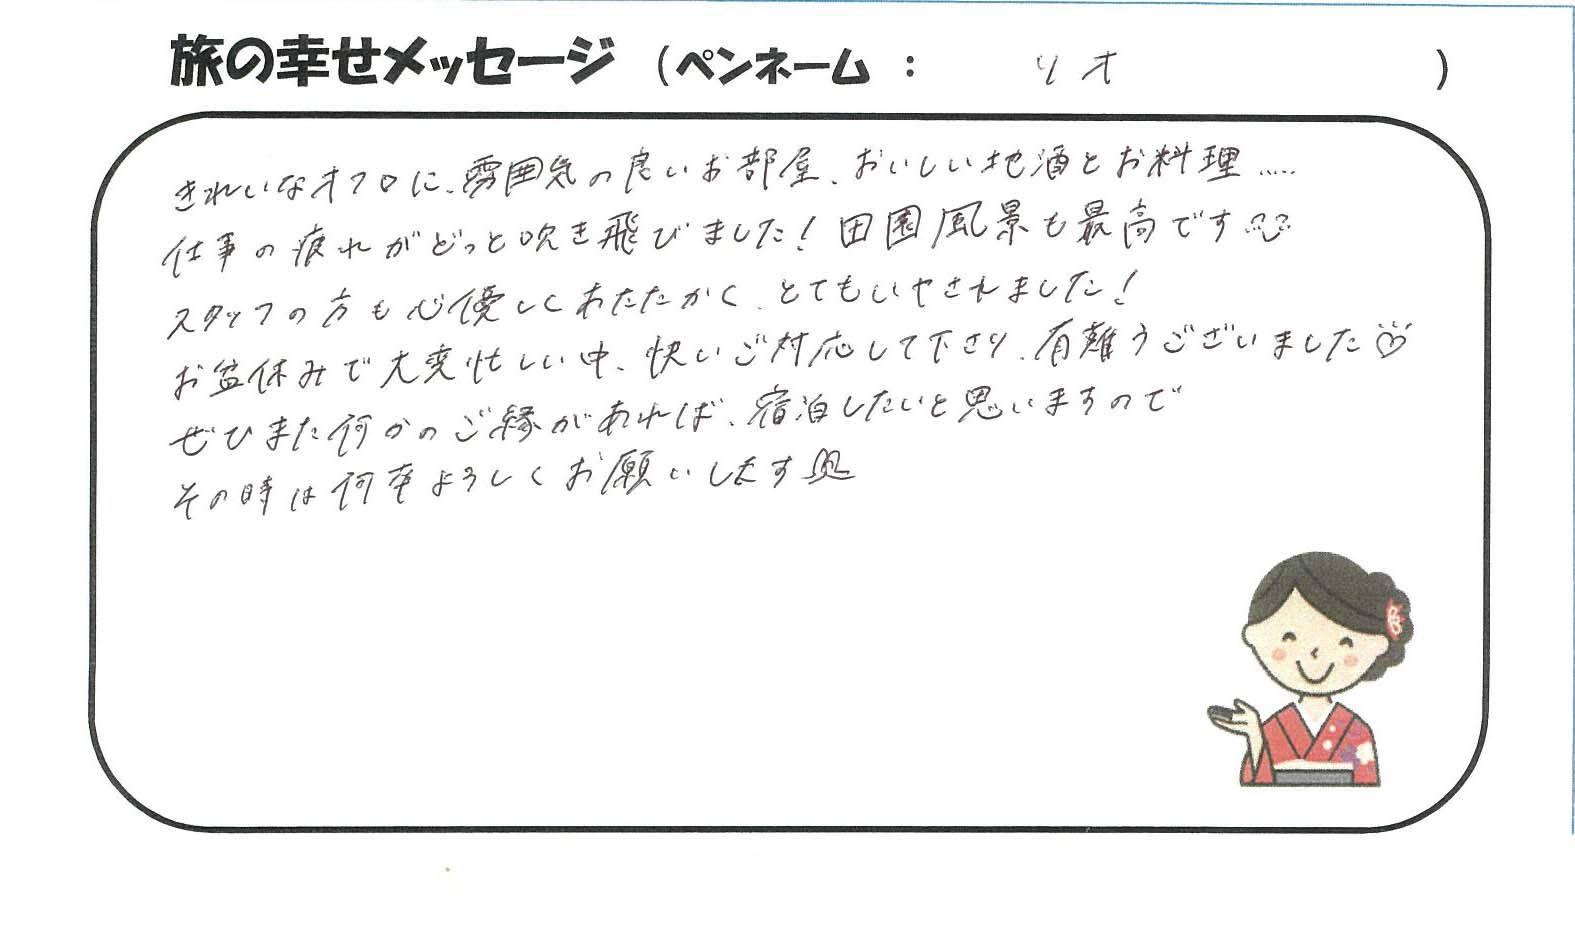 旅の幸せメッセージ（ペンネーム： リオ ）
きれいなオフロに、雰囲気の良いお部屋、おいしい地酒とお料理.....
仕事の疲れがどっと吹き飛びました！田園風景も最高です
スタッフの方も心優しくあたたかく、とてもいやされました！
お盆休みで大変忙しい中、快いご対応して下さり、有難うございました♡
ぜひまた何かのご縁があれば、宿泊したいと思いますので
その時は何卒よろしくお願いします